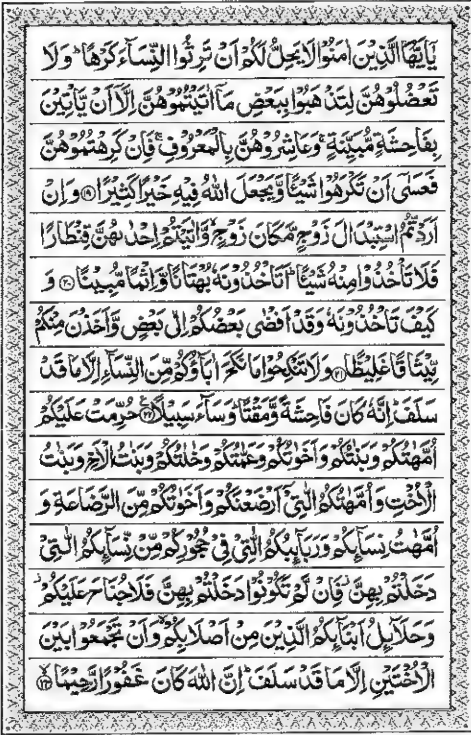 يٰۤاَيُّهَا الَّذِيْنَ اٰمَنُوْا لَا يَحِلُّ لَكُمْ اَنْ تَرِثُوا النِّسَآءَ كَرْهًا ؕ وَلَا
تَعْضُلُوْهُنَّ لِتَذْهَبُوْا بِبَعْضِ مَاۤ اٰتَيْتُمُوْهُنَّ اِلَّاۤ اَنْ يَّاْتِيْنَ
بِفَاحِشَةٍ مُّبَيِّنَةٍ ۚ وَعَاشِرُوْهُنَّ بِالْمَعْرُوْفِ ۚ فَاِنْ كَرِهْتُمُوْهُنَّ
فَعَسٰۤى اَنْ تَكْرَهُوْا شَيْئًا وَّيَجْعَلَ اللّٰهُ فِيْهِ خَيْرًا كَثِيْرًا ﴿۱۹﴾ وَاِنْ
اَرَدْتُّمُ اسْتِبْدَالَ زَوْجٍ مَّكَانَ زَوْجٍ ۙ وَّاٰتَيْتُمْ اِحْدٰىهُنَّ قِنْطَارًا
فَلَا تَاْخُذُوْا مِنْهُ شَيْئًا ؕ اَتَاْخُذُوْنَهٗ بُهْتَانًا وَّاِثْمًا مُّبِيْنًا ﴿۲۰﴾ وَ
كَيْفَ تَاْخُذُوْنَهٗ وَقَدْ اَفْضٰى بَعْضُكُمْ اِلٰى بَعْضٍ وَّاَخَذْنَ مِنْكُمْ
مِّيْثَاقًا غَلِيْظًا ﴿۲۱﴾ وَلَا تَنْكِحُوْا مَا نَكَحَ اٰبَآؤُكُمْ مِّنَ النِّسَآءِ اِلَّا مَا قَدْ
سَلَفَ ؕ اِنَّهٗ كَانَ فَاحِشَةً وَّمَقْتًا ؕ وَسَآءَ سَبِيْلًا ﴿۲۲﴾ حُرِّمَتْ عَلَيْكُمْ
اُمَّهٰتُكُمْ وَبَنٰتُكُمْ وَاَخَوٰتُكُمْ وَعَمّٰتُكُمْ وَخٰلٰتُكُمْ وَبَنٰتُ الْاَخِ وَبَنٰتُ
الْاُخْتِ وَاُمَّهٰتُكُمُ الّٰتِيْۤ اَرْضَعْنَكُمْ وَاَخَوٰتُكُمْ مِّنَ الرَّضَاعَةِ وَ
اُمَّهٰتُ نِسَآئِكُمْ وَرَبَآئِبُكُمُ الّٰتِيْ فِيْ حُجُوْرِكُمْ مِّنْ نِّسَآئِكُمُ الّٰتِيْ
دَخَلْتُمْ بِهِنَّ ۫ فَاِنْ لَّمْ تَكُوْنُوْا دَخَلْتُمْ بِهِنَّ فَلَا جُنَاحَ عَلَيْكُمْ ۫
وَحَلَآئِلُ اَبْنَآئِكُمُ الَّذِيْنَ مِنْ اَصْلَابِكُمْ ۙ وَاَنْ تَجْمَعُوْا بَيْنَ
الْاُخْتَيْنِ اِلَّا مَا قَدْ سَلَفَ ؕ اِنَّ اللّٰهَ كَانَ غَفُوْرًا رَّحِيْمًا ﴿۲۳﴾